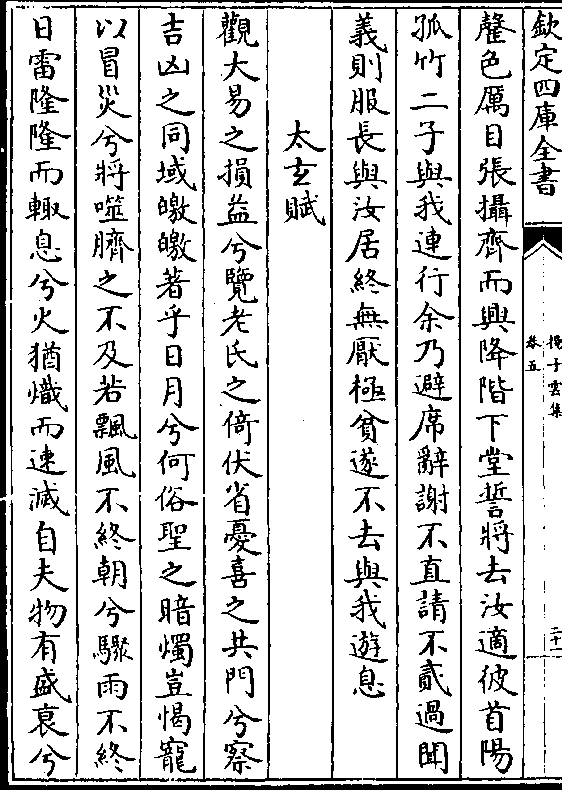 欽定四庫全書
揚子雲集
卷五
二十一
聲色厲目張攝齊而興降階下堂誓將去汝適彼首陽
孤竹二子與我連行余乃避席辭謝不直請不貳過聞
義則服長與汝居終無厭極貧遂不去與我遊息
太玄賦
觀大易之損益兮覽老氏之倚伏省憂喜之共門兮察
吉凶之同域皦皦著乎日月兮何俗聖之暗燭豈愒寵
以冒災兮將噬臍之不及若飄風不終朝兮驟雨不終
日雷隆隆而輙息兮火猶熾而速滅自夫物有盛衰兮